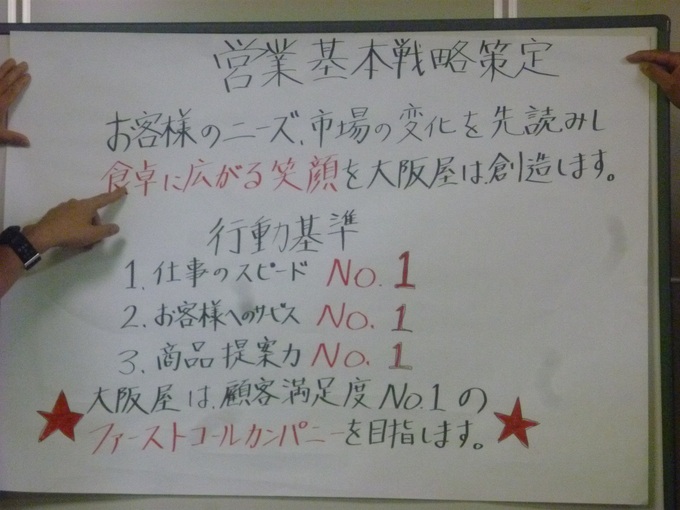 営業基本戦略策定
お客様のニーズ、市場の変化を先読みし
食卓に広がる笑顔を大阪屋は、創造します。
行動基準
1. 仕事のスピード No.1
2. お客様へのサービス No.1
3. 商品提案力 No.1
大阪屋は、顧客満足度No.1の
ファーストコールカンパニーを目指します。